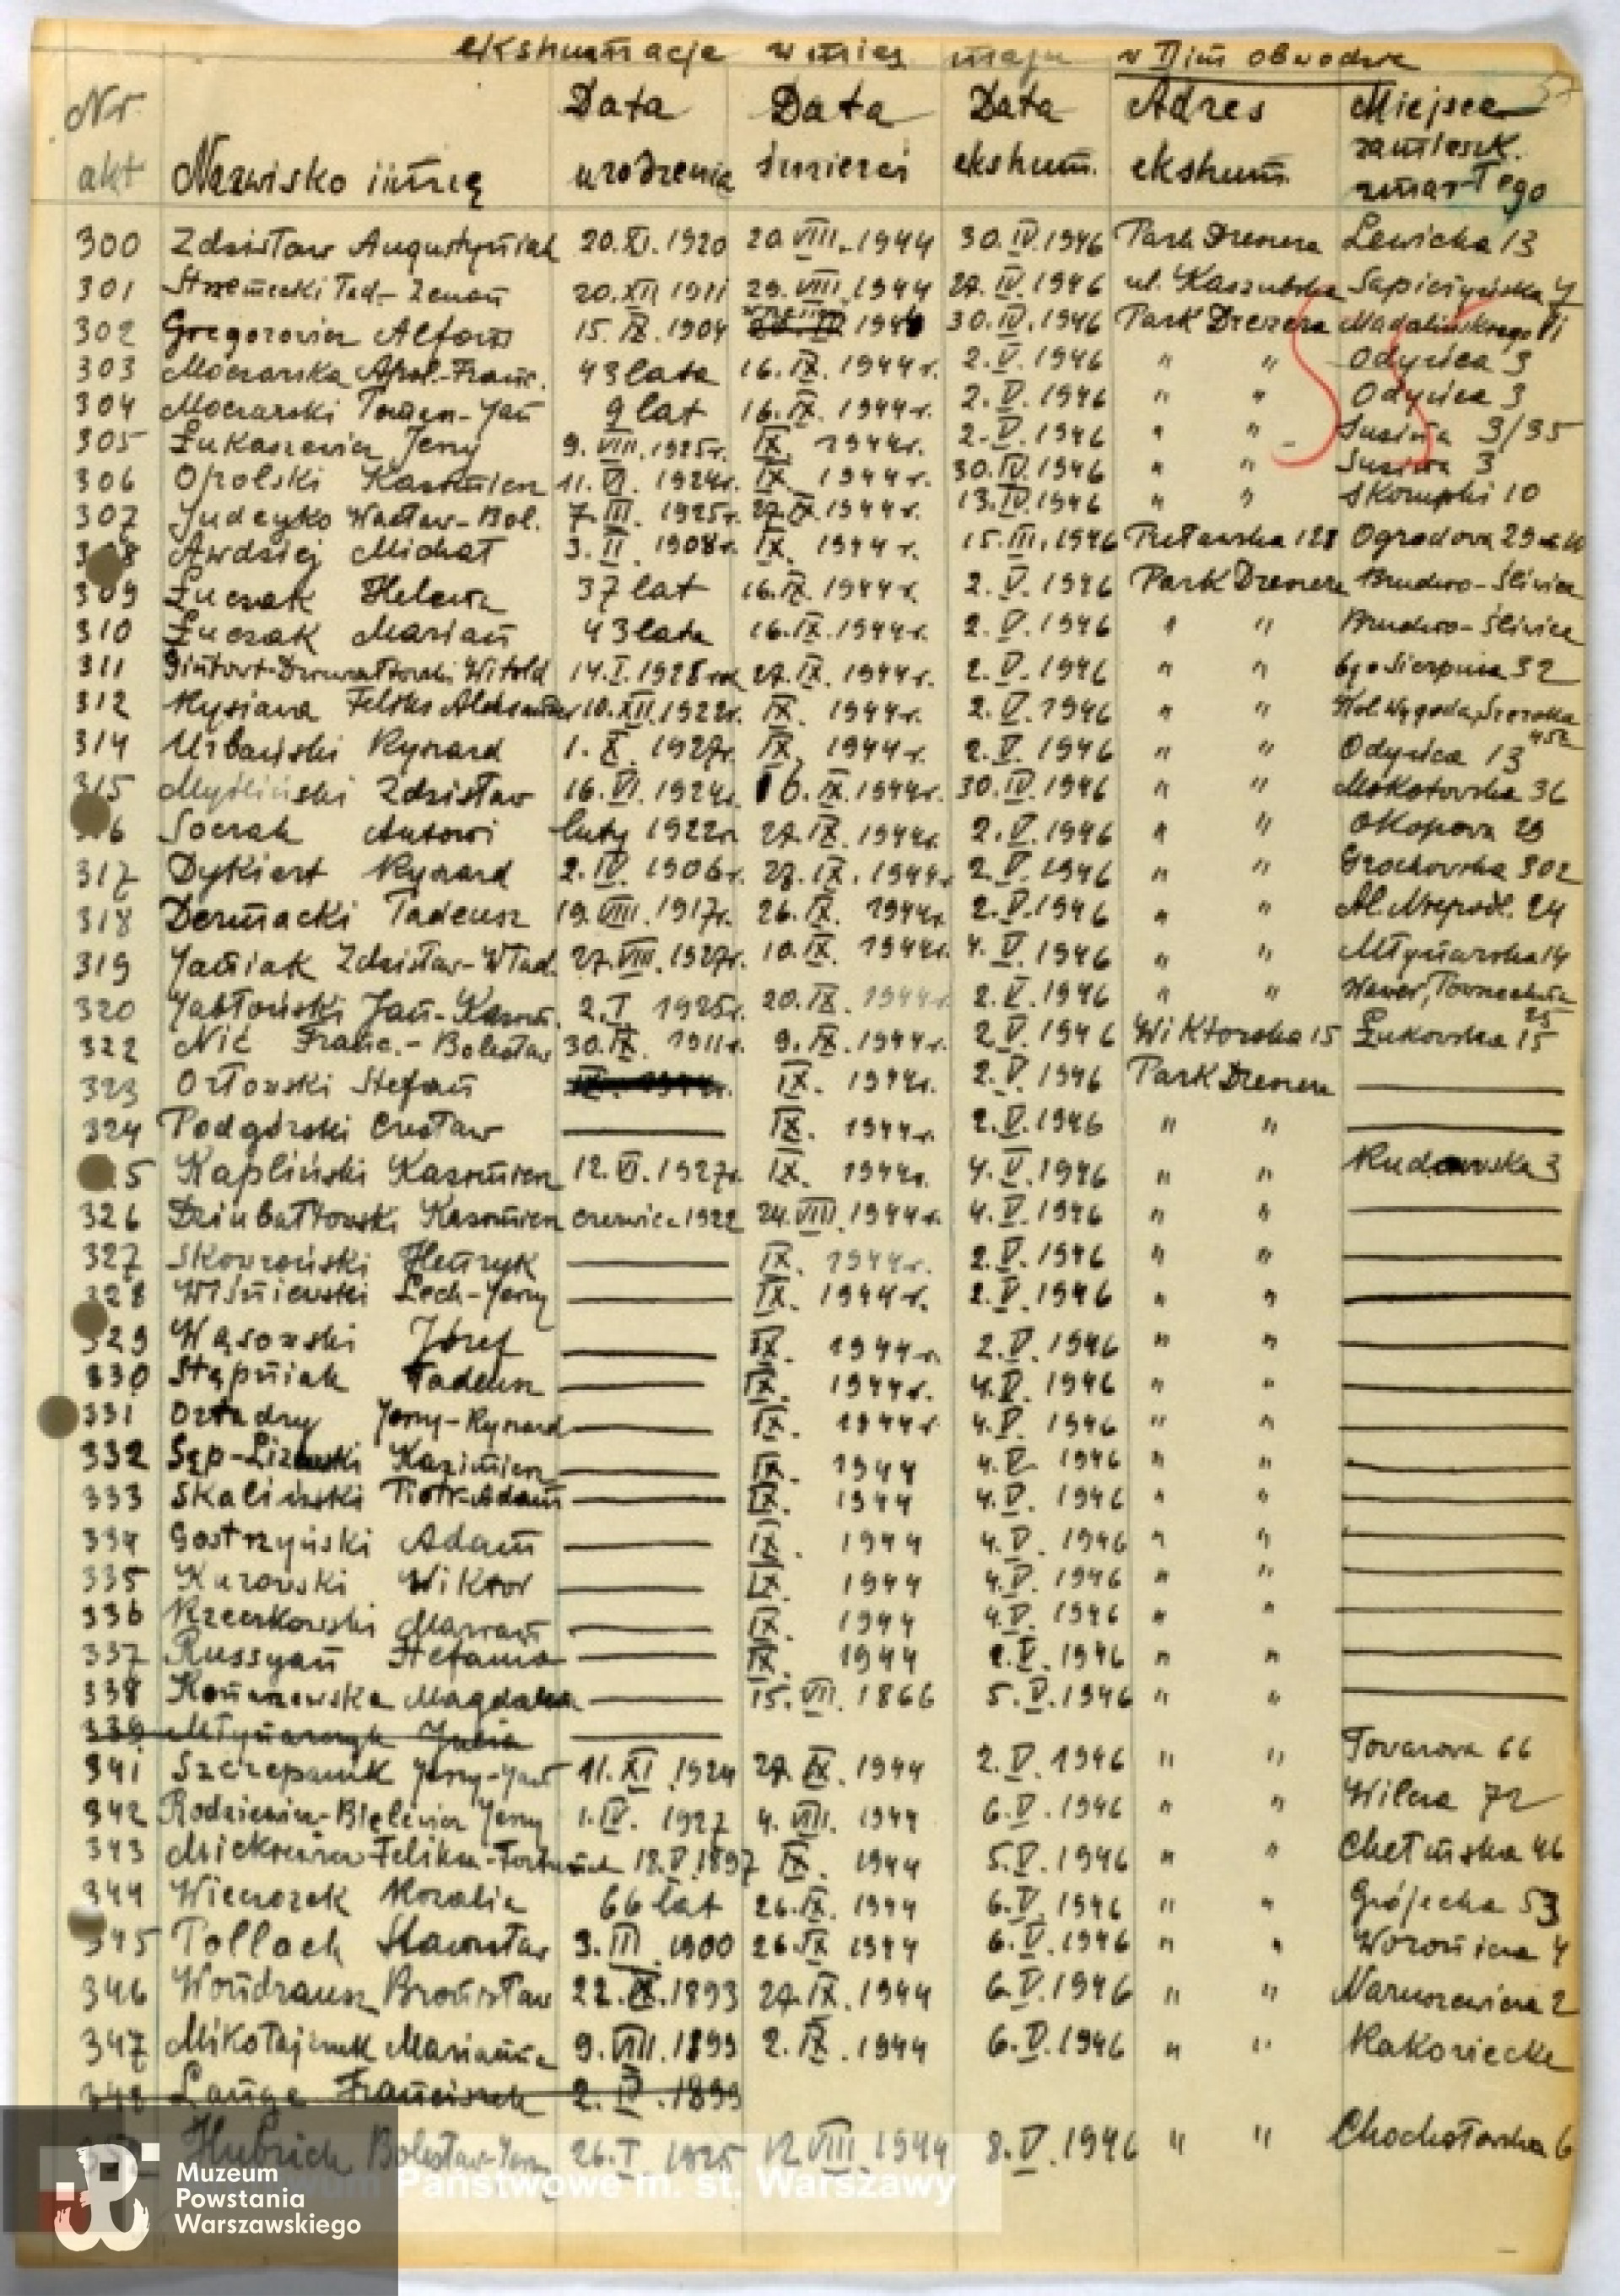 ekshumacje w mies maju w II im obwodzie
Nr. akt Nazwisko i imię Data urodzenia Data śmierci Data ekshum. Adres ekshum. Miejsce zamieszk. zmarłego
300 Zdzisław Augustyniak 20.XI.1920 20.VIII.1944 30.IV.1946 Park Dreszera Lewicka 13
301 Strzemecki Tad-Zenon 20.XII 1911 29.VIII.1944 27.IV.1946 ul. Kaszubska Sapieżyńska
302 Gregorowicz Alfons 15.IX.1904 30.IV.1946 Park Dreszera Madalińskiego 11
303 Moczarska Apol.-Franc. 43 lata 16.IX.1944 r. 2.V.1946 " " Odyńca 3
304 Moczarski Roman-Jan 9 lat 16.IX.1944 r. 2.V.1946 " " Odyńca 3
305 Łukaszewicz Jerzy 9.VIII.1925r. IX. 1944r. 2.V.1946 " " Susina 3/35
306 Opolski Kazimierz 11.VI.1924r. IX. 1944 r. 30.IV.1946 " " Susina 3
307 Judeyko Wacław-Bol. 7.III.1925r. 27.IX.1944 r. 13.IV.1946 " " Skorupki 10
308 Awdziej Michał 3.II.1908r. IX. 1944 r. 15.III.1946 Puławska 128 Ogrodowa 29
309 Łuczak Helena 37 lat 16.IX.1944 r. 2.V.1946 Park Dreszera -Śliwice
310 Łuczak Marian 43 lata 16.IX.1944 r. 2.V.1946 " " -Śliwice
311 Gintowt-Dziewałtowski Witold 14.I.1928 rok 27.IX.1944 r. 2.V.1946 " " 6go Sierpnia 32
312 Feliks Aleksander 10.XII.1922r. IX. 1944r. 2.V.1946 " " Kol. Wygoda,
314 Urbański Ryszard 1.X.1927r. IX. 1944 r. 2.V.1946 " " Odyńca 13
315 Myśliński Zdzisław 16.VI.1924r. 16.IX.1944r. 30.IV.1946 " " Mokotowska 36
316 Soczak Antoni luty 1922r. 27.IX.1944r. 2.V.1946 " " Okopowa 29
317 Dykiert Ryszard 2.IV.1906r. 27.IX.1944r. 2.V.1946 " " Grochowska 302
318 Dermacki Tadeusz 19.VIII.1917r. 26.IX.1944r. 2.V.1946 " " Al. Niepodl. 24
319 Janiak Zdzisław-Wład. 27.VIII.1927r. 10.IX.1944r. 4.V.1946 " " Młynarska 14
320 Jabłoński Jan-Kazim. 2.I 1925r. 20.IX.1944r 2.V.1946 " " Wawer,
322 Nić Franc.-Bolesław 30.IX.1911r. 9.IX.1944r. 2.V.1946 Wiktorska 15 Żukowska 15
323 Orłowski Stefan IX. 1944r. 2.V.1946 Park Dreszera
324 Podgórski Czesław IX. 1944r. 2.V.1946 " "
325 Kapliński Kazimierz 12.VI.1927r. IX. 1944r. 4.V.1946 " " 3
326 Dziubałtowski Kazimierz czerwiec 1922 24.VIII.1944r. 4.V.1946 " "
327 Skowroński Henryk IX. 1944r. 2.V.1946 " "
328 Wiśniewski Lech-Jerzy IX. 1944 r. 2.V.1946 " "
329 Wąsowski Józef IX. 1944 r. 2.V.1946 " "
330 Stępniak Tadeusz IX. 1944r. 4.V.1946 " "
331 Jerzy-Ryszard IX. 1944r 4.V.1946 " "
332 Sęp- Kazimierz IX. 1944 4.V.1946 " "
333 Skaliński Piotr-Adam IX. 1944 4.V.1946 " "
334 Gostrzyński Adam IX. 1944 4.V.1946 " "
335 Kurowski Wiktor IX. 1944 4.V.1946 " "
336 Rzeczkowski Marian IX. 1944 4.V.1946 " "
337 Russyan Stefania IX. 1944 2.V.1946 " "
338 Magdalena 15.VII.1866 5.V.1946 " "
339 Młynarczyk Julia
341 Szczepanik Jerzy-Jan 11.XI.1924 27.IX.1944 2.V.1946 " " Towarowa 66
342 Rodziewicz-Bielewicz Jerzy 1.IV.1927 4.VIII.1944 6.V.1946 " " Wilcza 72
343 Mickiewicz Feliksa- 18.V.1897 IX. 1944 5.V.1946 " " Chełmska 46
344 Wieczorek Rozalia 66 lat 26.IX.1944 6.V.1946 " " Grójecka 53
345 Pollack Stanisław 3.III.1900 26.IX 1944 6.V.1946 " " Woronicza 4
346 Bronisław 22.IX.1893 27.IX.1944 6.V.1946 " " Naruszewicza 2
347 Mikołajczuk Marianna 9.VIII.1899 2.IX.1944 6.V.1946 " " Rakowiecka
348 Lange Franciszek 2.IV.1899
Hubrich Bolesław-Jerzy 26.I 1925 12 VIII.1944 8.V.1946 " " Chochołowska 6
Państwowe m. st. Warszawy
Muzeum
Powstania
Warszawskiego